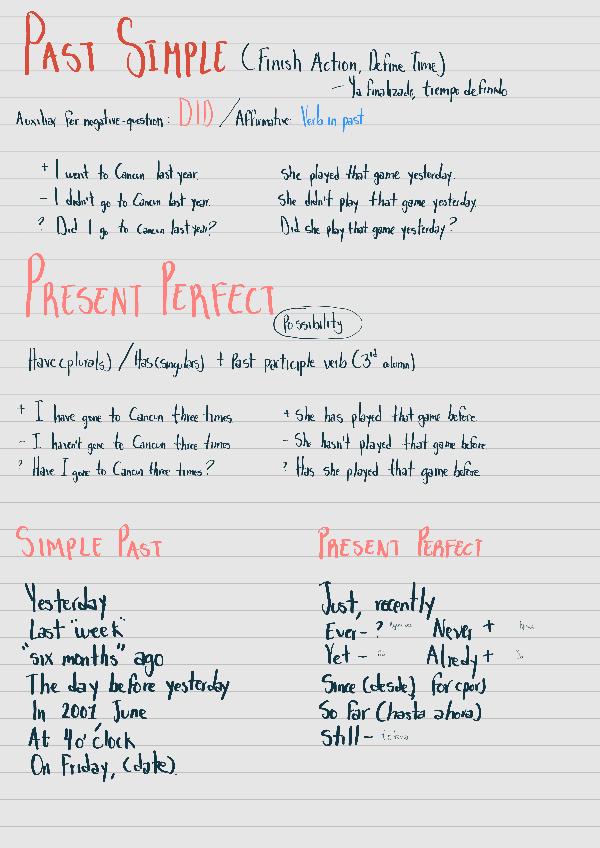 PAST SIMPLE (Finish Action, Define Time)
– Ya finalizado, tiempo definido
Auxiliar for negative-question: DID / Affirmative: Verb in past
+ I went to Cancun last year. She played that game yesterday.
– I didn't go to Cancun last year. She didn't play that game yesterday
? Did I go to Cancun last year? Did she play that game yesterday?
PRESENT PERFECT
Possibility
Have (plurals) / Has (singulars) + Past participle verb (3rd column)
+ I have gone to Cancun three times + She has played that game before.
– I haven't gone to Cancun three times – She hasn't played that game before
? Have I gone to Cancun three times? ? Has she played that game before
SIMPLE PAST PRESENT PERFECT
Yesterday Just, recently
Last "week" Ever – ? Never +
"six months" ago Yet – Alredy +
The day before yesterday Since (desde) for (por)
In 2001 June So far (hasta ahora)
At 4 o'clock Still –
On Friday, (date).